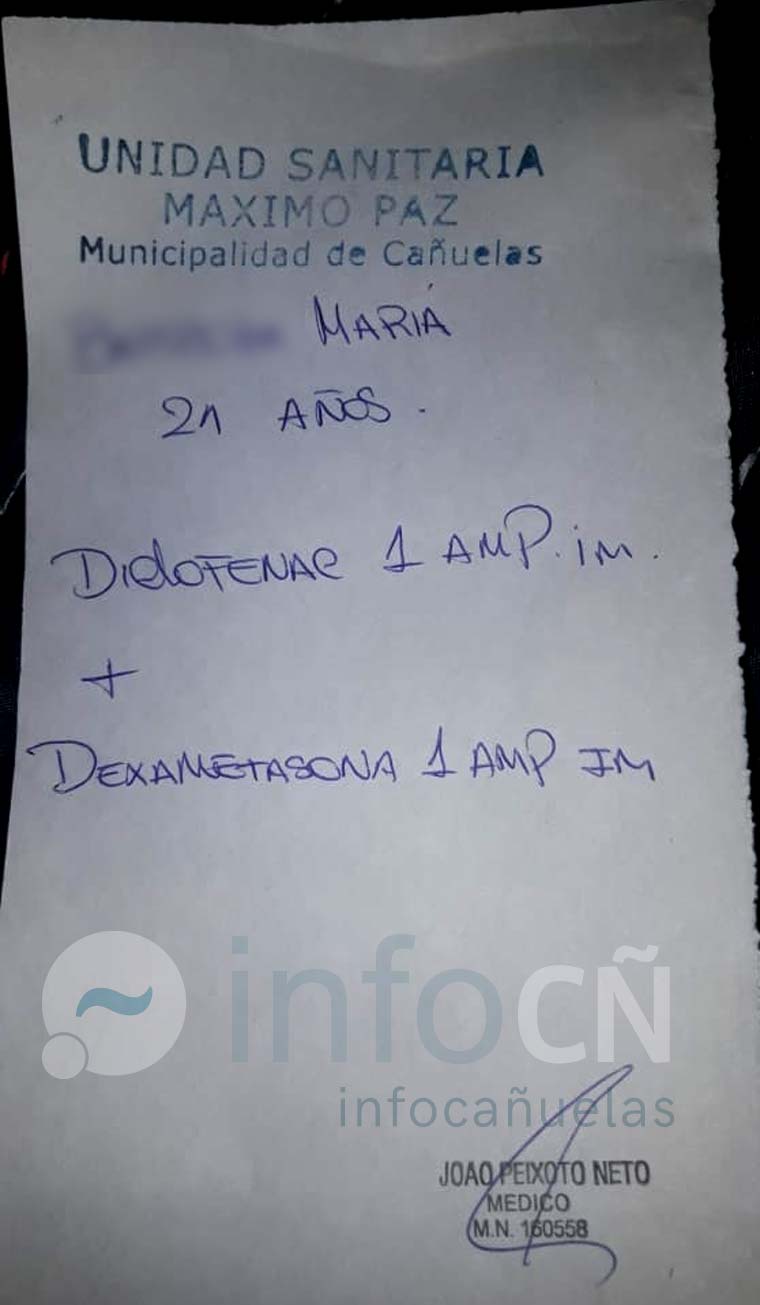 UNIDAD SANITARIA
MAXIMO PAZ
Municipalidad de Cañuelas
MARIA
21 AÑOS.
DICLOFENAC 1 AMP. im.
+
DEXAMETASONA 1 AMP IM
infoCÑ
infocañuelas
JOAO PEIXOTO NETO
MEDICO
M.N. 160558